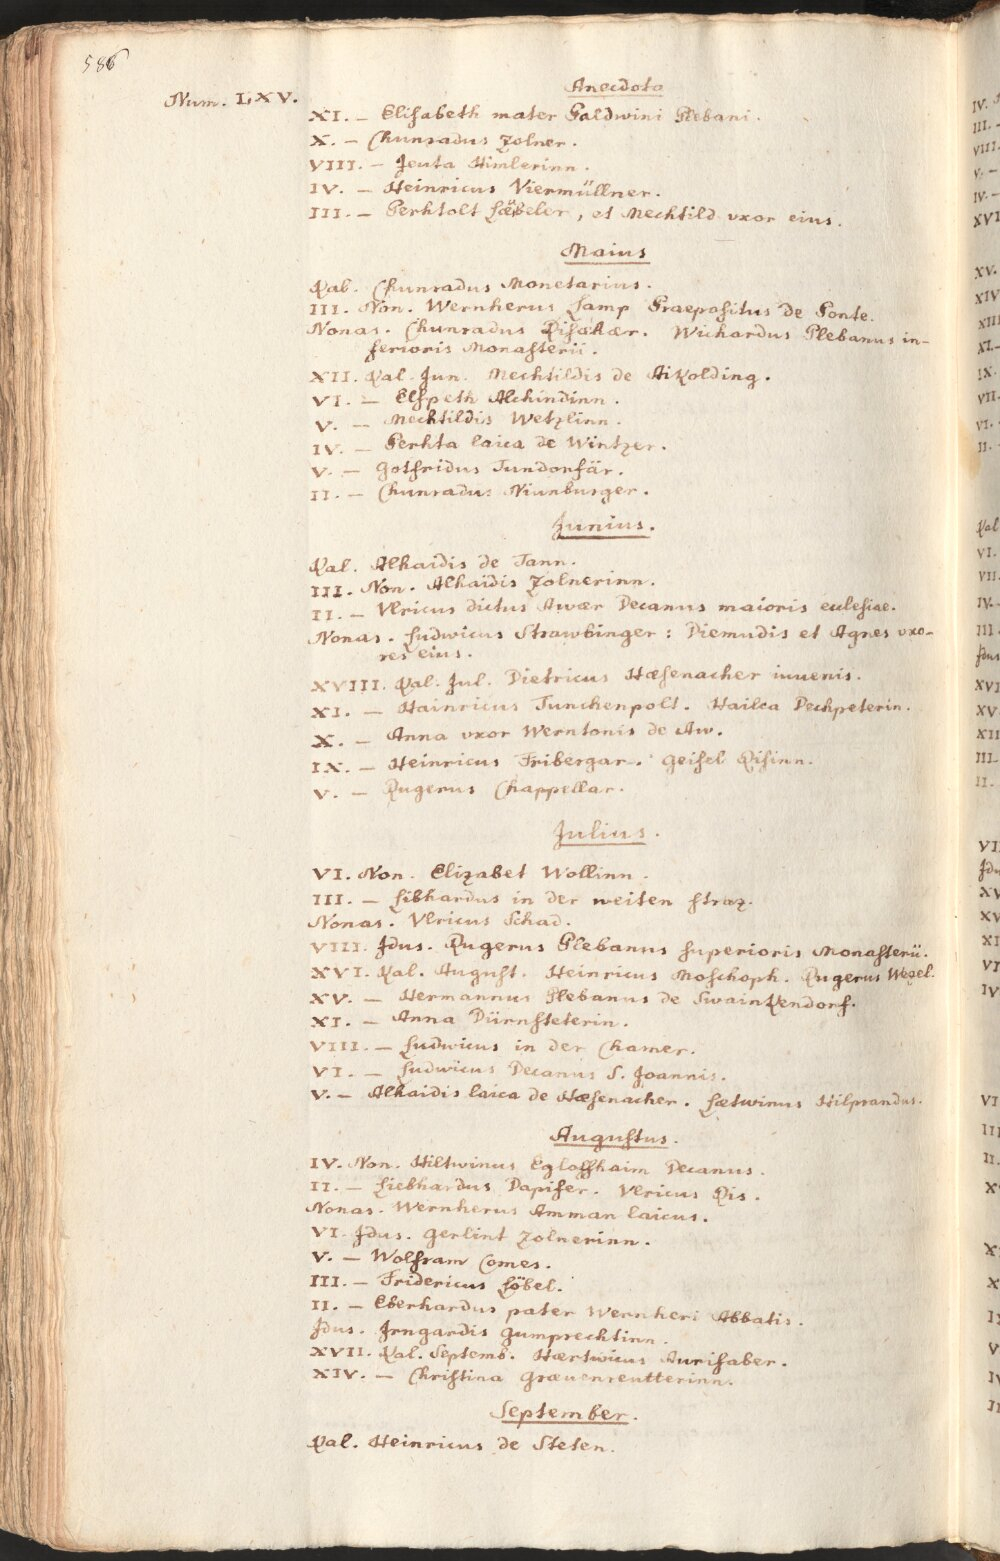 586
Num. LXV.
Anecdota
XI. – Elisabeth mater Paldwini Plebani.
X. – Chunradus Zolner.
VIII. – Jeuta Himlerinn.
IV. – Heinricus Viermüllner.
III. – Perhtolt, et Mechtild vxor eius.
Maius
Kal. Chunradus Monetarius.
III. Non. Wernherus Lamp Praepositus de Ponte.
Nonas. Chunradus. Wichardus Plebanus in-
ferioris Monasterii.
XII. Kal. Jun. Mechtildis de Aikolding.
VI. – Elspeth Alchindinn.
V. – Mechtildis Wetzlinn.
IV. – Perhta laica de Wintzer.
V. – Gotfridus Tundonfär.
II. – Chunradus Niunburger.
Junius.
Kal. Alhaidis de Tann.
III. Non. Alhaidis Zolnerinn.
II. – Vlricus dictus Awær Decanus maioris ecclesiae.
Nonas. Ludwicus Strawbinger: Diemudis et Agnes vxo-
res eius.
XVIII. Kal. Jul. Dietricus Hæsenacher iuuenis.
XI. – Hainricus Tunchenpolt. Hailca Pechpeterin.
X. – Anna vxor Werntonis de Aw.
IX. – Heinricus Fribergar. Geisel Risinn.
V. – Rugerus Chappellar.
Julius.
VI. Non. Elizabet Wollinn.
III. – Libhardus in der weiten straz.
Nonas. Vlricus Schad.
VIII. Idus. Rugerus Plebanus superioris Monasterii.
XVI. Kal. August. Heinricus Moschoph. Rugerus Wezel.
XV. – Hermannus Plebanus de Swainkendorf.
XI. – Anna Dürnsteterin.
VIII. – Ludwicus in der Chamer.
VI. – Ludwicus Decanus S. Joannis.
V. – Alhaidis laica de Hæsenacher. Lætwinus Hilprandus.
Augustus.
IV. Non. Hiltwinus Eglofshaim Decanus.
II. – Liebhardus Dapifer. Vlricus Ris.
Nonas. Wernherus Amman laicus.
VI. Idus. Gerlint Zolnerinn.
V. – Wolfram Comes.
III. – Fridericus Löbel.
II. – Eberhardus pater Wernheri Abbatis.
Idus. Irngardis Gumprechtinn.
XVII. Kal. Septemb. Hærtwicus Aurifaber.
XIV. – Christina Græuenreutterinn.
September.
Kal. Heinricus de Steten.